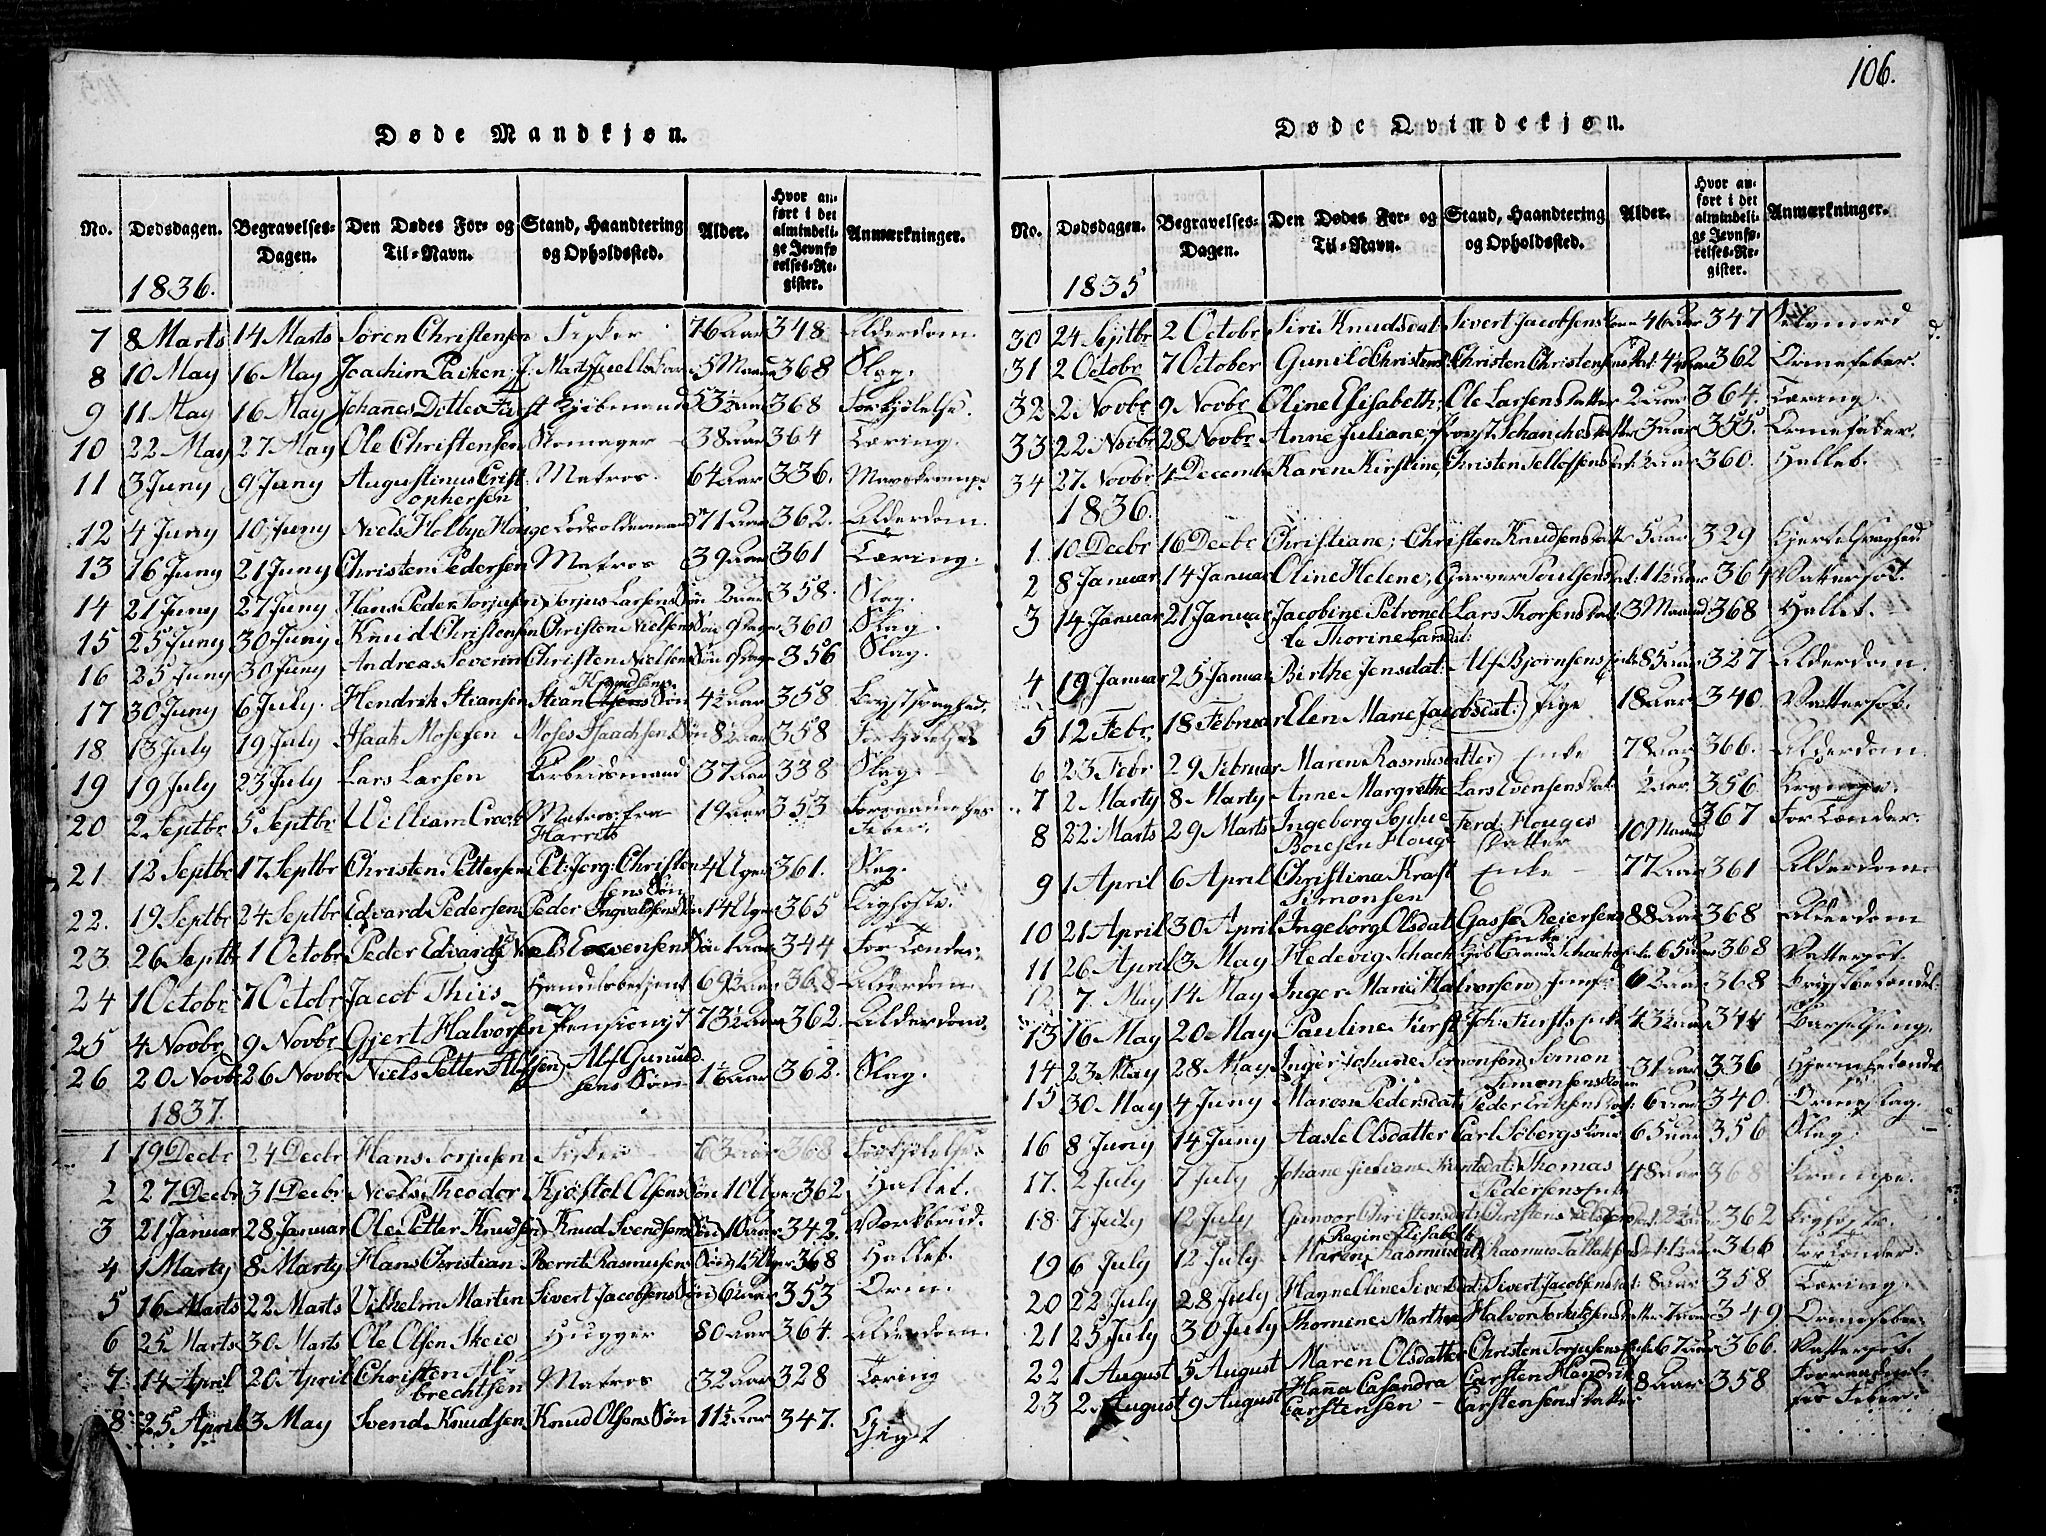 106.
Døde Mandkjøn.
No. Dødsdagen. Begravelses-Dagen. Den Dødes For- og Til-Navn. Stand, Haandtering og Opholdssted. Alder. Hvor anført i det almindelige Jevnførelses-Register. Anmærkninger.
1836.
7 8 Marts 14 Marts Søren Christensen Fisker 76 Aar 348 Alderdom.
8 10 May 16 May Joachim 5 Maan 368 Slag.
9 11 May 16 May Johannes Ditlev Kjøbmand 53½ Aar 368 Forkjølelse.
10 22 May 27 May Ole Christensen Skomager 38 Aar 364 Tæring.
11 3 Juny 9 Juny Augustinus Crist- Matros 64 Aar 336. Mavekrampe
ophersen
12 4 Juny 10 Juny Niels Holby Houge Lodsoldermand 71 Aar 362. Alderdom.
13 16 Juny 21 Juny Christen Pedersen Matros 39 Aar 361 Tæring.
14 21 Juny 27 Juny Hans Peder Torjusen Torjus Larsens Søn 2 Aar 358. Slag.
15 25 Juny 30 Juny Knud Christensen Christen Nielsens Søn 9 Dage 360 Slag.
16 25 Juny 30 Juny Andreas Severin Christen Nielsens Søn 9 Dage 356 Slag.
Knudsens
17 30 Juny 6 July. Hendrik Stiansen Stian Olsens Søn 4½ Aar 358 Brystsvaghed.
18 13 July 19 July Isaak Mosesen Moses Isaachsens Søn 8½ Aar 358 Forkjølelse
19 19 July 23 July Lars Larsen Arbeidsmand 37 Aar 338 Slag.
20 2 Septbr 5 Septbr William Matros fra 19 Aar 353 Forraadnelses
Harrits Feber.
21 12 Septbr 17 Septbr Christen Pettersen Pet: Jørg: Christen 4 Uger 361. Slag.
sens Søn
22. 19 Septbr 24 Septbr Edvard Pedersen Peder Ingvaldsens Søn 14 Uger 365 Kighoste.
23 26 Septbr 1 Octobr Peder Edvard Niels Evensens Søn 1 Aar 344 For Tænder.
24 1 Octobr 7 Octobr Jacob Thiis Handelsbetjent 69½ Aar 368 Alderdom
25 4 Novbr 9 Novbr Gjert Halvorsen Pensionist 73½ Aar 362. Alderdom.
26 20 Novbr 26 Novbr Niels Petter Alfsen Alf Gunuld 1½ Aar 362. Slag.
sens Søn
1837.
1 19 Decbr 24 Decbr Hans Torjusen Fisker 63 Aar 368 Forkjølelse.
2 27 Decbr 31 Decbr Niels Theodor Kjøstol Olsens Søn 10 Uger 362 Hallet.
3 21 Januar 28 Januar Ole Petter Knudsen Knud Svendsens Søn 10 Aar 342. Værkbrud.
4 1 Marty 8 Marty Hans Christian Bernt Rasmusens Søn 15 Uger 368 Hallet.
5 16 Marts 22 Marts Vilhelm Martin Sivert Jacobsens Søn 6 Aar 353 Orm.
6 25 Marts 30 Marts Ole Olsen Skeie Hugger 80 Aar 364. Alderdom.
7 14 April 20 April Christen Al- Matros 32 Aar 328 Tæring
brechtsen
8 25 April 3 May Svend Knudsen Knud Olsens Søn 11½ Aar 347. Gigt
Døde Qvindekjøn.
No. Dødsdagen. Begravelses-Dagen. Den Dødes For- og Til-Navn. Stand, Haandtering og Opholdssted. Alder. Hvor anført i det almindelige Jevnførelses-Register. Anmærkninger.
1835
30 24 Septbr 2 Octobr Siri Knudsdat: Sivert Jacobsens Kone 46 Aar 347 Selvmord
31 2 Octobr 7 October Gunild Christens Christen Christensens Dat: 4½ Aar 362 Ormefeber.
32 2 Novbr 9 Novbr Oline Elisabeth: Ole Larsens Datter 2 Aar 364. Tæring.
33 22 Novbr 28 Novbr Anne Juliane, Schanches Datter 3 Aar 355. Ormefeber.
34 27 Novbr 4 Decemb Karen Kirstine, Christen Tellefsens Dat: ½ Aar 360. Hallet.
1836.
1. 10 Decbr 16 Decbr Christiane; Christen Knudsens Datter 5 Aar 329 Kjertelsvaghed
2 8 Januar 14 Januar Oline Helene; Poulsens Dat: 11½ Aar 364 Vattersot.
3 14 Januar 21 Januar Jacobine Petronel Lars Thorsens Dat: 3 Maaned 368 Hallet.
le Thorine Larsdat:
4 19 Januar 25 Januar Birthe Jensdat: Alf Bjørnsens Enke 85 Aar 327 Alderdom.
5 12 Febr. 18 Februar Elen Marie Jacobsdat: Pige 18 Aar 340. Vattersot.
6 23 Febr 29 Februar Maren Rasmusdatter Enke 78 Aar 366. Alderdom.
7 2 Marty 8 Marty Anne Margrethe Lars Evensens Dat: 2 Aar 356 Krampe.
8 22 Marts 29 Marts Ingeborg Sophie Ferd. Houges 10 Maaned 367 For Tænder.
Boresen Houge Datter
9 1 April 6 April Christina Kraft Enke 77 Aar 361 Alderdom.
Simonsen
10 21 April 30 April Ingeborg Olsdat: Gasse Reiersens 88 Aar 368 Alderdom
Enke
11 26 April 3 May Hedevig Schach Schachs Enke 65 Aar 368 Vattersot.
12 7. May 14 May Inger Marie Halvorsen Jomfr: 62 Aar 368 Brystbetændel:
13 16 May 20 May Pauline Furst Joh: Fursts Enke 43½ Aar 344 Barselseng.
14 23 May 28 May Inger Johane Simonsen Simon 31 Aar 336 Hjernebetændel
Simonsens Kone
15 30 May 4 Juny Maren Pedersdat: Peder Eriksens Dat: 6 Aar 340. Ormeslag.
16 8 Juny 14 Juny Aasle Olsdatter Carl Søbergs Kone 65 Aar 356 Slag.
17. 2 July 7 July Johane Juliane Knutsdat: Thomas 48 Aar 368 Krampe.
Pedersens Enke
18 7 July 12 July Gunvor Christensdat: Christen Nielsens Dat: 362 Kighoste.
Regine Elisabeth
19 6 July 12 July Maren Rasmusdat: Rasmus Tallaksens Dat: 366 For Tænder.
20 22 July 28 July Hanne Oline Sivertsdat: Sivert Jacobsens Dat: 8 Aar 358 Tæring.
21 25 July 30 July Thomine Marthe Halvor Datter 7 Aar 349 Ormefeber.
22 1 August 5 August Maren Olsdatter Christen Torjusens Enke 67 Aar 366. Vattersot.
23 2. August 9 August Hanna Casandra Carsten Hendrik 8 Aar 358 Forraadnel-
Carstensen Carstensens Datter ses Feber.